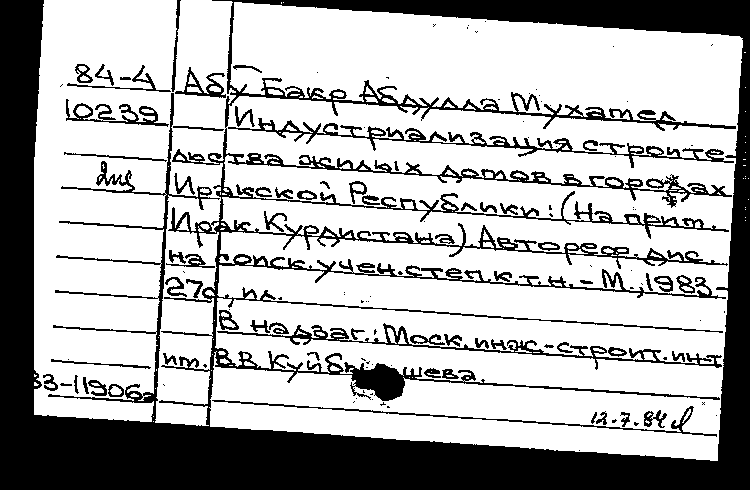 84-4 Абу Бакр Абдулла Мухамед.
10239 Индустриализация строите-
льства жилых домов в городах
Иракской Республики: (На прим.
Ирак. Курдистана). Автореф. дис.
на соиск. учен. степ. к.т.н. - М., 1983-
27с., ил.
В надзаг.: Моск. инж.-строит. ин-т
им. В.В. Куйбышева.
83-11906а
12.7.84